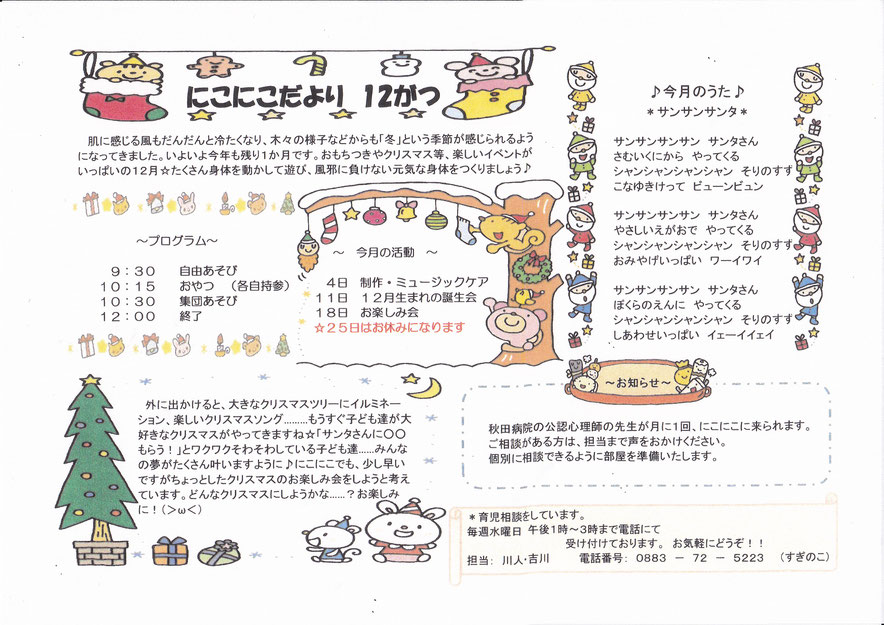 にこにこだより 12がつ
肌に感じる風もだんだんと冷たくなり、木々の様子などからも「冬」という季節が感じられるよう
になってきました。いよいよ今年も残り1か月です。おもちつきやクリスマス等、楽しいイベントが
いっぱいの12月☆たくさん身体を動かして遊び、風邪に負けない元気な身体をつくりましょう♪
～プログラム～
9:30 自由あそび
10:15 おやつ （各自持参）
10:30 集団あそび
12:00 終了
～ 今月の活動 ～
4日 制作・ミュージックケア
11日 12月生まれの誕生会
18日 お楽しみ会
☆25日はお休みになります
♪今月のうた♪
*サンサンサンタ*
サンサンサンサン サンタさん
さむいくにから やってくる
シャンシャンシャンシャン そりのすず
こなゆきけって ビューンビュン
サンサンサンサン サンタさん
やさしいえがおで やってくる
シャンシャンシャンシャン そりのすず
おみやげいっぱい ワーイワイ
サンサンサンサン サンタさん
ぼくらのえんに やってくる
シャンシャンシャンシャン そりのすず
しあわせいっぱい イェーイイェイ
外に出かけると、大きなクリスマスツリーにイルミネー
ション、楽しいクリスマスソング………もうすぐ子ども達が大
好きなクリスマスがやってきますね☆「サンタさんに〇〇
もらう！」とワクワクそわそわしている子ども達……みんな
の夢がたくさん叶いますように♪にこにこでも、少し早い
ですがちょっとしたクリスマスのお楽しみ会をしようと考え
ています。どんなクリスマスにしようかな……？お楽しみ
に！(＞ω＜)
～お知らせ～
秋田病院の公認心理師の先生が月に1回、にこにこに来られます。
ご相談がある方は、担当まで声をおかけください。
個別に相談できるように部屋を準備いたします。
*育児相談をしています。
毎週水曜日 午後1時～3時まで電話にて
受け付けております。 お気軽にどうぞ！！
担当： 川人・吉川 電話番号： 0883 － 72 － 5223 （すぎのこ）